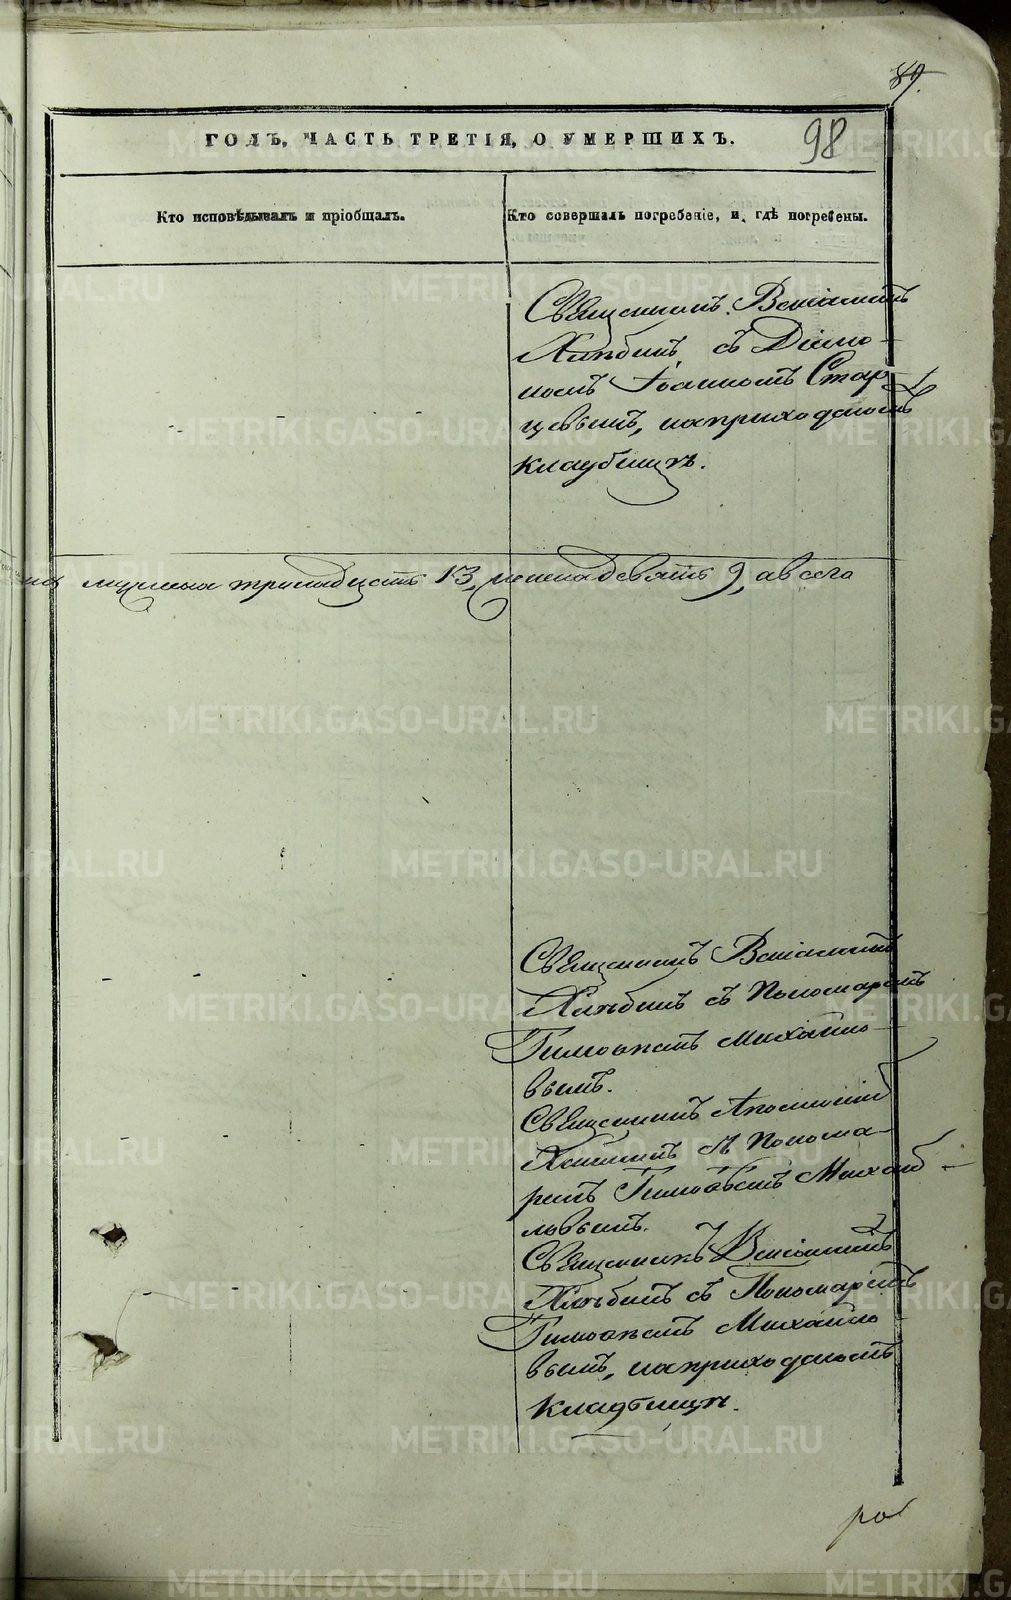 89.
98
ГОДЪ, ЧАСТЬ ТРЕТІЯ, О УМЕРШИХЪ.
Кто исповѣдывалъ и пріобщалъ.
Кто совершалъ погребеніе, и гдѣ погребены.
Священникъ Веніаминъ
Хлѣбинъ съ Діако-
номъ Іоанномъ Стар-
цевымъ, на приходскомъ
кладбищѣ.
мужеска тринадцать 13, женска девять 9, а всего
Священникъ Веніаминъ
Хлѣбинъ съ Пономаремъ
Тимоѳеемъ Михайло-
вымъ.
Священникъ
съ Понома-
ремъ Тимоѳеемъ Михай-
ловымъ.
Священникъ Веніаминъ
Хлѣбинъ съ Пономаремъ
Тимоѳеемъ Михайло
вымъ, на приходскомъ
кладбищѣ.
METRIKI.GASO-URAL.RU